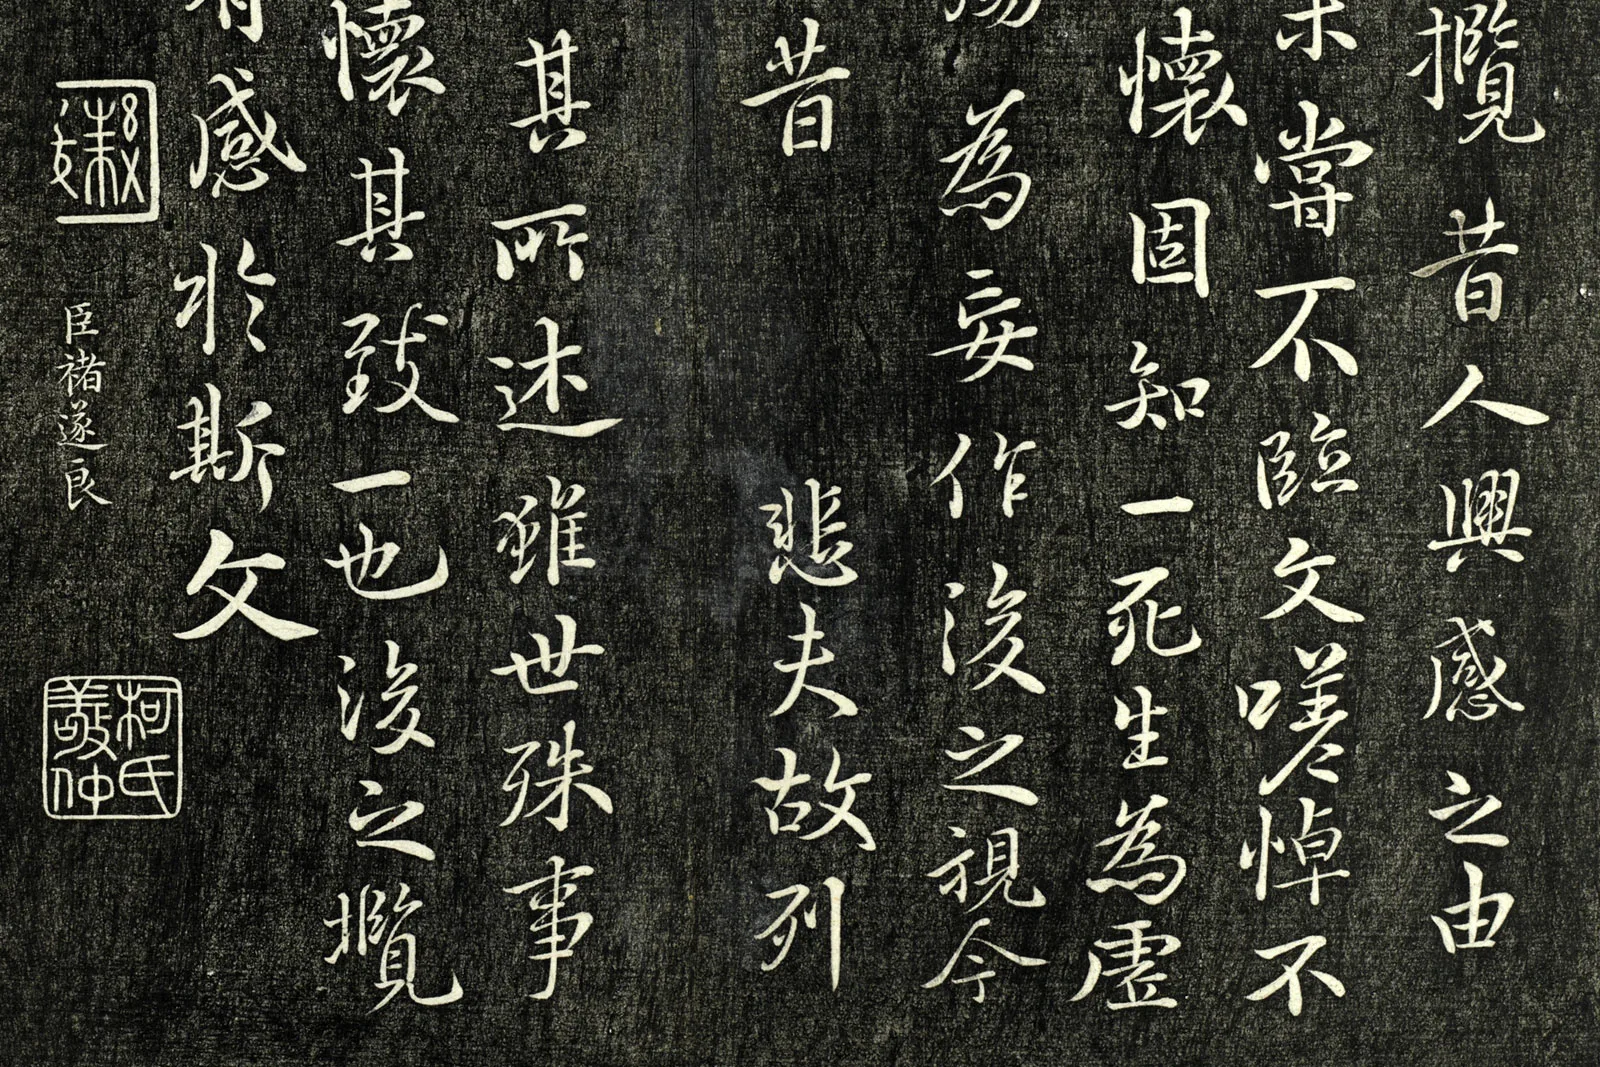 攬昔人興感之由
未嘗不臨文嗟悼不
懷固知一死生為虛
殤為妄作後之視今
昔悲夫故列
其所述雖世殊事
懷其致一也後之攬
有感於斯文
臣褚遂良
柯氏
敬仲